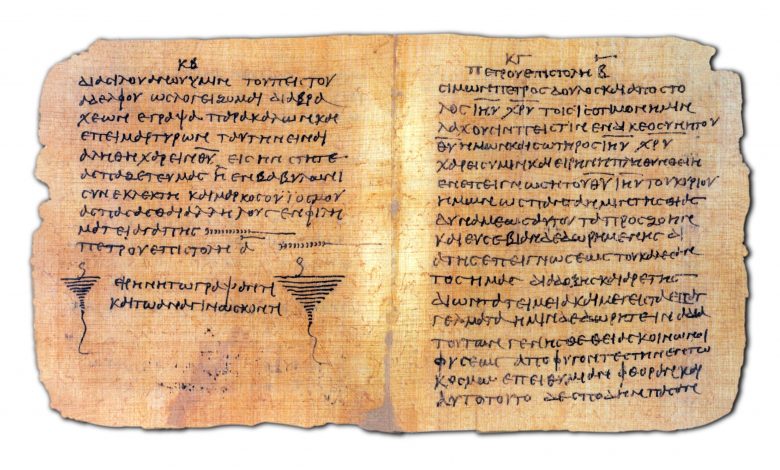 ΚΒ
ΔΙΑ ϹΙΛΟΥΑΝΟΥ ΥΜΙΝ ΤΟΥ ΠΙϹΤΟΥ
ΑΔΕΛΦΟΥ ΩϹ ΛΟΓΕΙΖΟΜΑΙ ΔΙΑ ΒΡΑ
ΧΕΩΝ ΕΓΡΑΨΑ ΠΑΡΑΚΑΛΩΝ ΚΑΙ
ΕΠΕΙΜΑΡΤΥΡΩΝ ΤΑΥΤΗΝ ΕΙΝΑΙ
ΑΛΗΘΗ ΧΑΡΕΙΝ Θ̅Υ̅ ΕΙϹ ΗΝ ϹΤΗΤΕ
ΑϹΠΑΖΕΤΕ ΥΜΑϹ Η ΕΝ ΒΑΒΥΛΩΝΙ
ϹΥΝΕΚΛΕΚΤΗ ΚΑΙ ΜΑΡΚΟϹ Ο ΥΙΟϹ ΜΟΥ
ΑϹΠΑϹΑϹΘΑΙ ΑΛΛΗΛΟΥϹ ΕΝ ΦΙΛΗ
ΜΑΤΕΙ ΑΓΑΠΗϹ
ΠΕΤΡΟΥ ΕΠΙϹΤΟΛΗ Α̅
ΕΙΡΗΝΗ ΤΩ ΓΡΑΨΑΝΤΙ
ΚΑΙ ΤΩ ΑΝΑΓΙΝΩϹΚΟΝΤΙ
ΚΓ
ΠΕΤΡΟΥ ΕΠΙϹΤΟΛΗ Β̅
ϹΙΜΩΝ ΠΕΤΡΟϹ ΔΟΥΛΟϹ ΚΑΙ ΑΠΟϹΤΟ
ΛΟϹ Ι̅Η̅Υ̅ Χ̅Ρ̅Υ̅ ΤΟΙϹ ΙϹΟΤΙΜΟΝ ΗΜΙΝ
ΛΑΧΟΥϹΙΝ ΠΙϹΤΙΝ ΕΝ ΔΙΚΕΟϹΥΝΗ ΤΟΥ
Θ̅Υ̅ ΗΜΩΝ ΚΑΙ ϹΩΤΗΡΟϹ Ι̅Η̅Υ̅ Χ̅Ρ̅Υ̅
ΧΑΡΕΙϹ ΥΜΙΝ ΚΑΙ ΕΙΡΗΝΗ ΠΛΗΘΥΝΘΕΙΗ
ΕΝ ΕΠΕΙΓΝΩϹΗ ΤΟΥ Θ̅Υ̅ Ι̅Η̅Υ̅ ΤΟΥ ΚΥΡΙΟΥ
ΗΜΩΝ ΩϹ ΠΑΝΤΑ ΗΜΙΝ ΤΗϹ ΘΕΙΑϹ
ΔΥΝΑΜΕΩϹ ΑΥΤΟΥ ΤΑ ΠΡΟϹ ΖΩΗΝ
ΚΑΙ ΕΥϹΕΒΙΑΝ ΔΕΔΩΡΗΜΕΝΗϹ ΔΙ
Α ΤΗϹ ΕΠΕΙΓΝΩϹΕΩϹ ΤΟΥ ΚΑΛΕϹΑΝ
ΤΟϹ ΗΜΑϹ ΔΙΑ ΔΟΞΗϹ ΚΑΙ ΑΡΕΤΗϹ
ΔΙ ΩΝ ΤΑ ΤΕΙΜΕΙΑ ΚΑΙ ΜΕΓΕΙϹΤΑ ΕΠΑΓ
ΓΕΛΜΑΤΑ ΗΜΙΝ ΔΕΔΩΡΗΤΕ ΙΝΑ ΔΙΑ
ΤΟΥΤΩΝ ΓΕΝΗϹΘΕ ΘΕΙΑϹ ΚΟΙΝΩΝΟΙ
ΦΥϹΕΩϹ ΑΠΟΦΥΓΟΝΤΕϹ ΤΗΝ ΕΝ ΤΩ
ΚΟϹΜΩ ΕΠΕΙΘΥΜΙΑΝ ΦΘΟΡΑΝ ΚΑΙ
ΑΥΤΟ ΤΟΥΤΟ ΔΕ ϹΠΟΥΔΗΝ ΠΑϹΑΝ